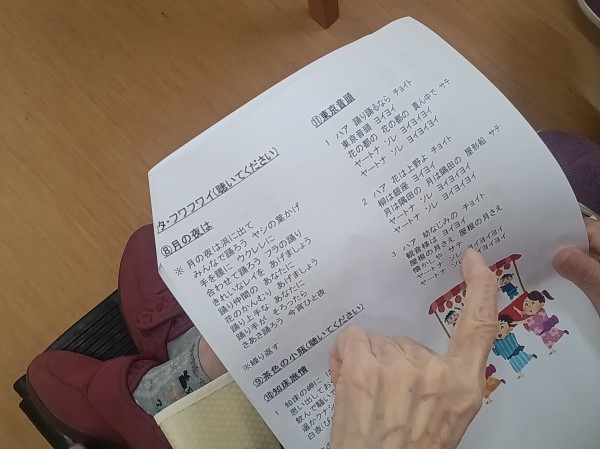 タ・フワフワイ(聴いてください)
⑧月の夜は
※ 月の夜は浜に出て
みんなで踊ろう ヤシの葉かげ
手を腰に ウクレレに
合わせて踊ろう フラの踊り
きれいなレイを あげましょう
踊り仲間の あなたに
花のかんむり あげましょう
踊り上手な あなたに
踊り手が そろったら
さあさ踊ろう 今宵ひと夜
※繰り返す
⑨茶色の小瓶(聴いてください)
⑩知床旅情
1 知床の岬に
思い出してお
飲んで騒いで
遥かクナシ
白夜
⑪東京音頭
1 ハア 踊り踊るなら チョイト
東京音頭 ヨイヨイ
花の都の 花の都の 真ん中で サテ
ヤートナ ソレ ヨイヨイヨイ
ヤートナ ソレ ヨイヨイヨイ
2 ハア 花は上野よ チョイト
柳は銀座 ヨイヨイ
月は隅田の 月は隅田の 屋形船 サテ
ヤートナ ソレ ヨイヨイヨイ
ヤートナ ソレ ヨイヨイヨイ
3 ハア 幼なじみの チョイト
観音様は ヨイヨイ
屋根の月さえ 屋根の月さえ
懐かしや サテ
ヤートナ ソレ ヨイヨイヨイ
ヤートナ ソレ ヨイヨイヨイ